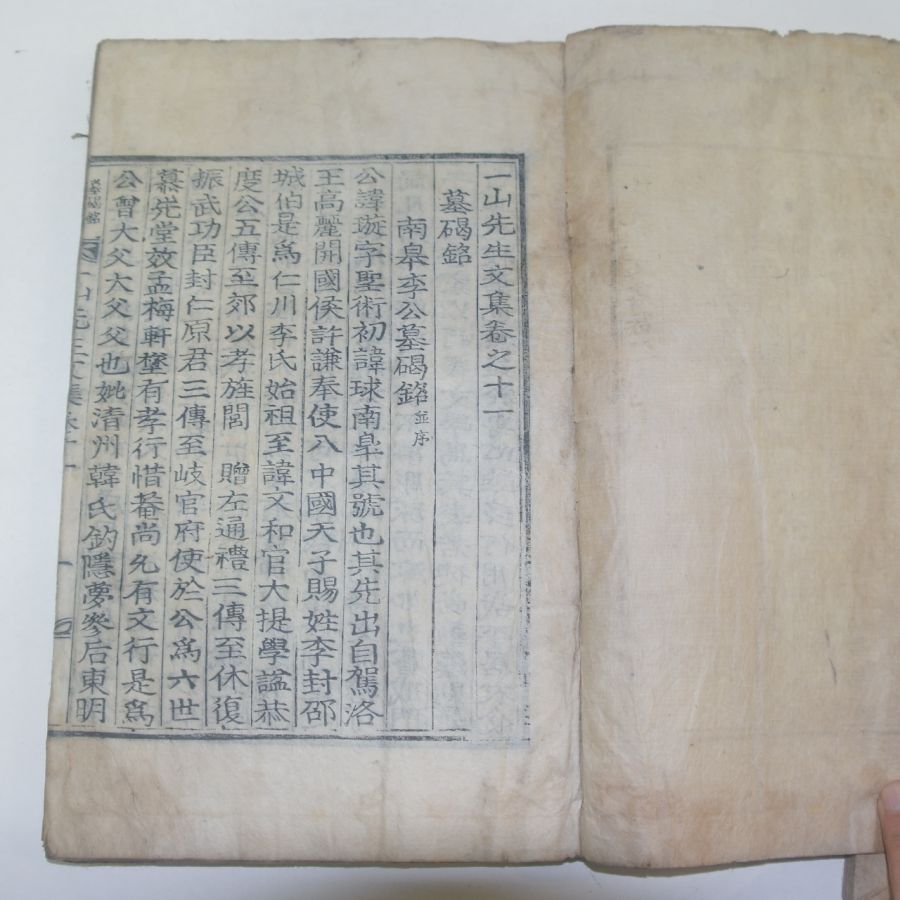 一山先生文集卷之十一
墓碣銘
南皐李公墓碣銘並序
公諱璇字聖術初諱球南皐其號也其先出自駕洛
王高麗開國侯許謙奉使入中國天子賜姓李封邵
城伯是爲仁川李氏始祖至諱文和官大提學諡恭
度公五傳至郊以孝旌閭贈左通禮三傳至休復
振武功臣封仁原君三傳至岐官府使於公爲六世
慕先堂效孟梅軒墪有孝行惜菴尚允有文行是爲
公曾大父大父父也妣清州韓氏釣隱夢參后東明
一山先生文集卷十一
一